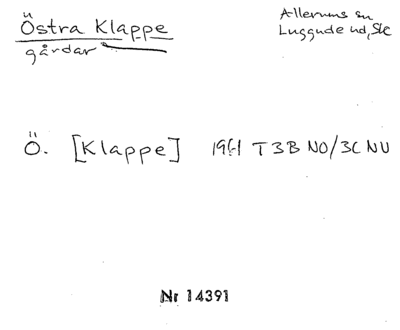 Östra Klappe
gårdar
Allerums sn
Luggude hd, Sk
Ö. [Klappe] 1961 T 3B NO/3C NV
Nr 14391